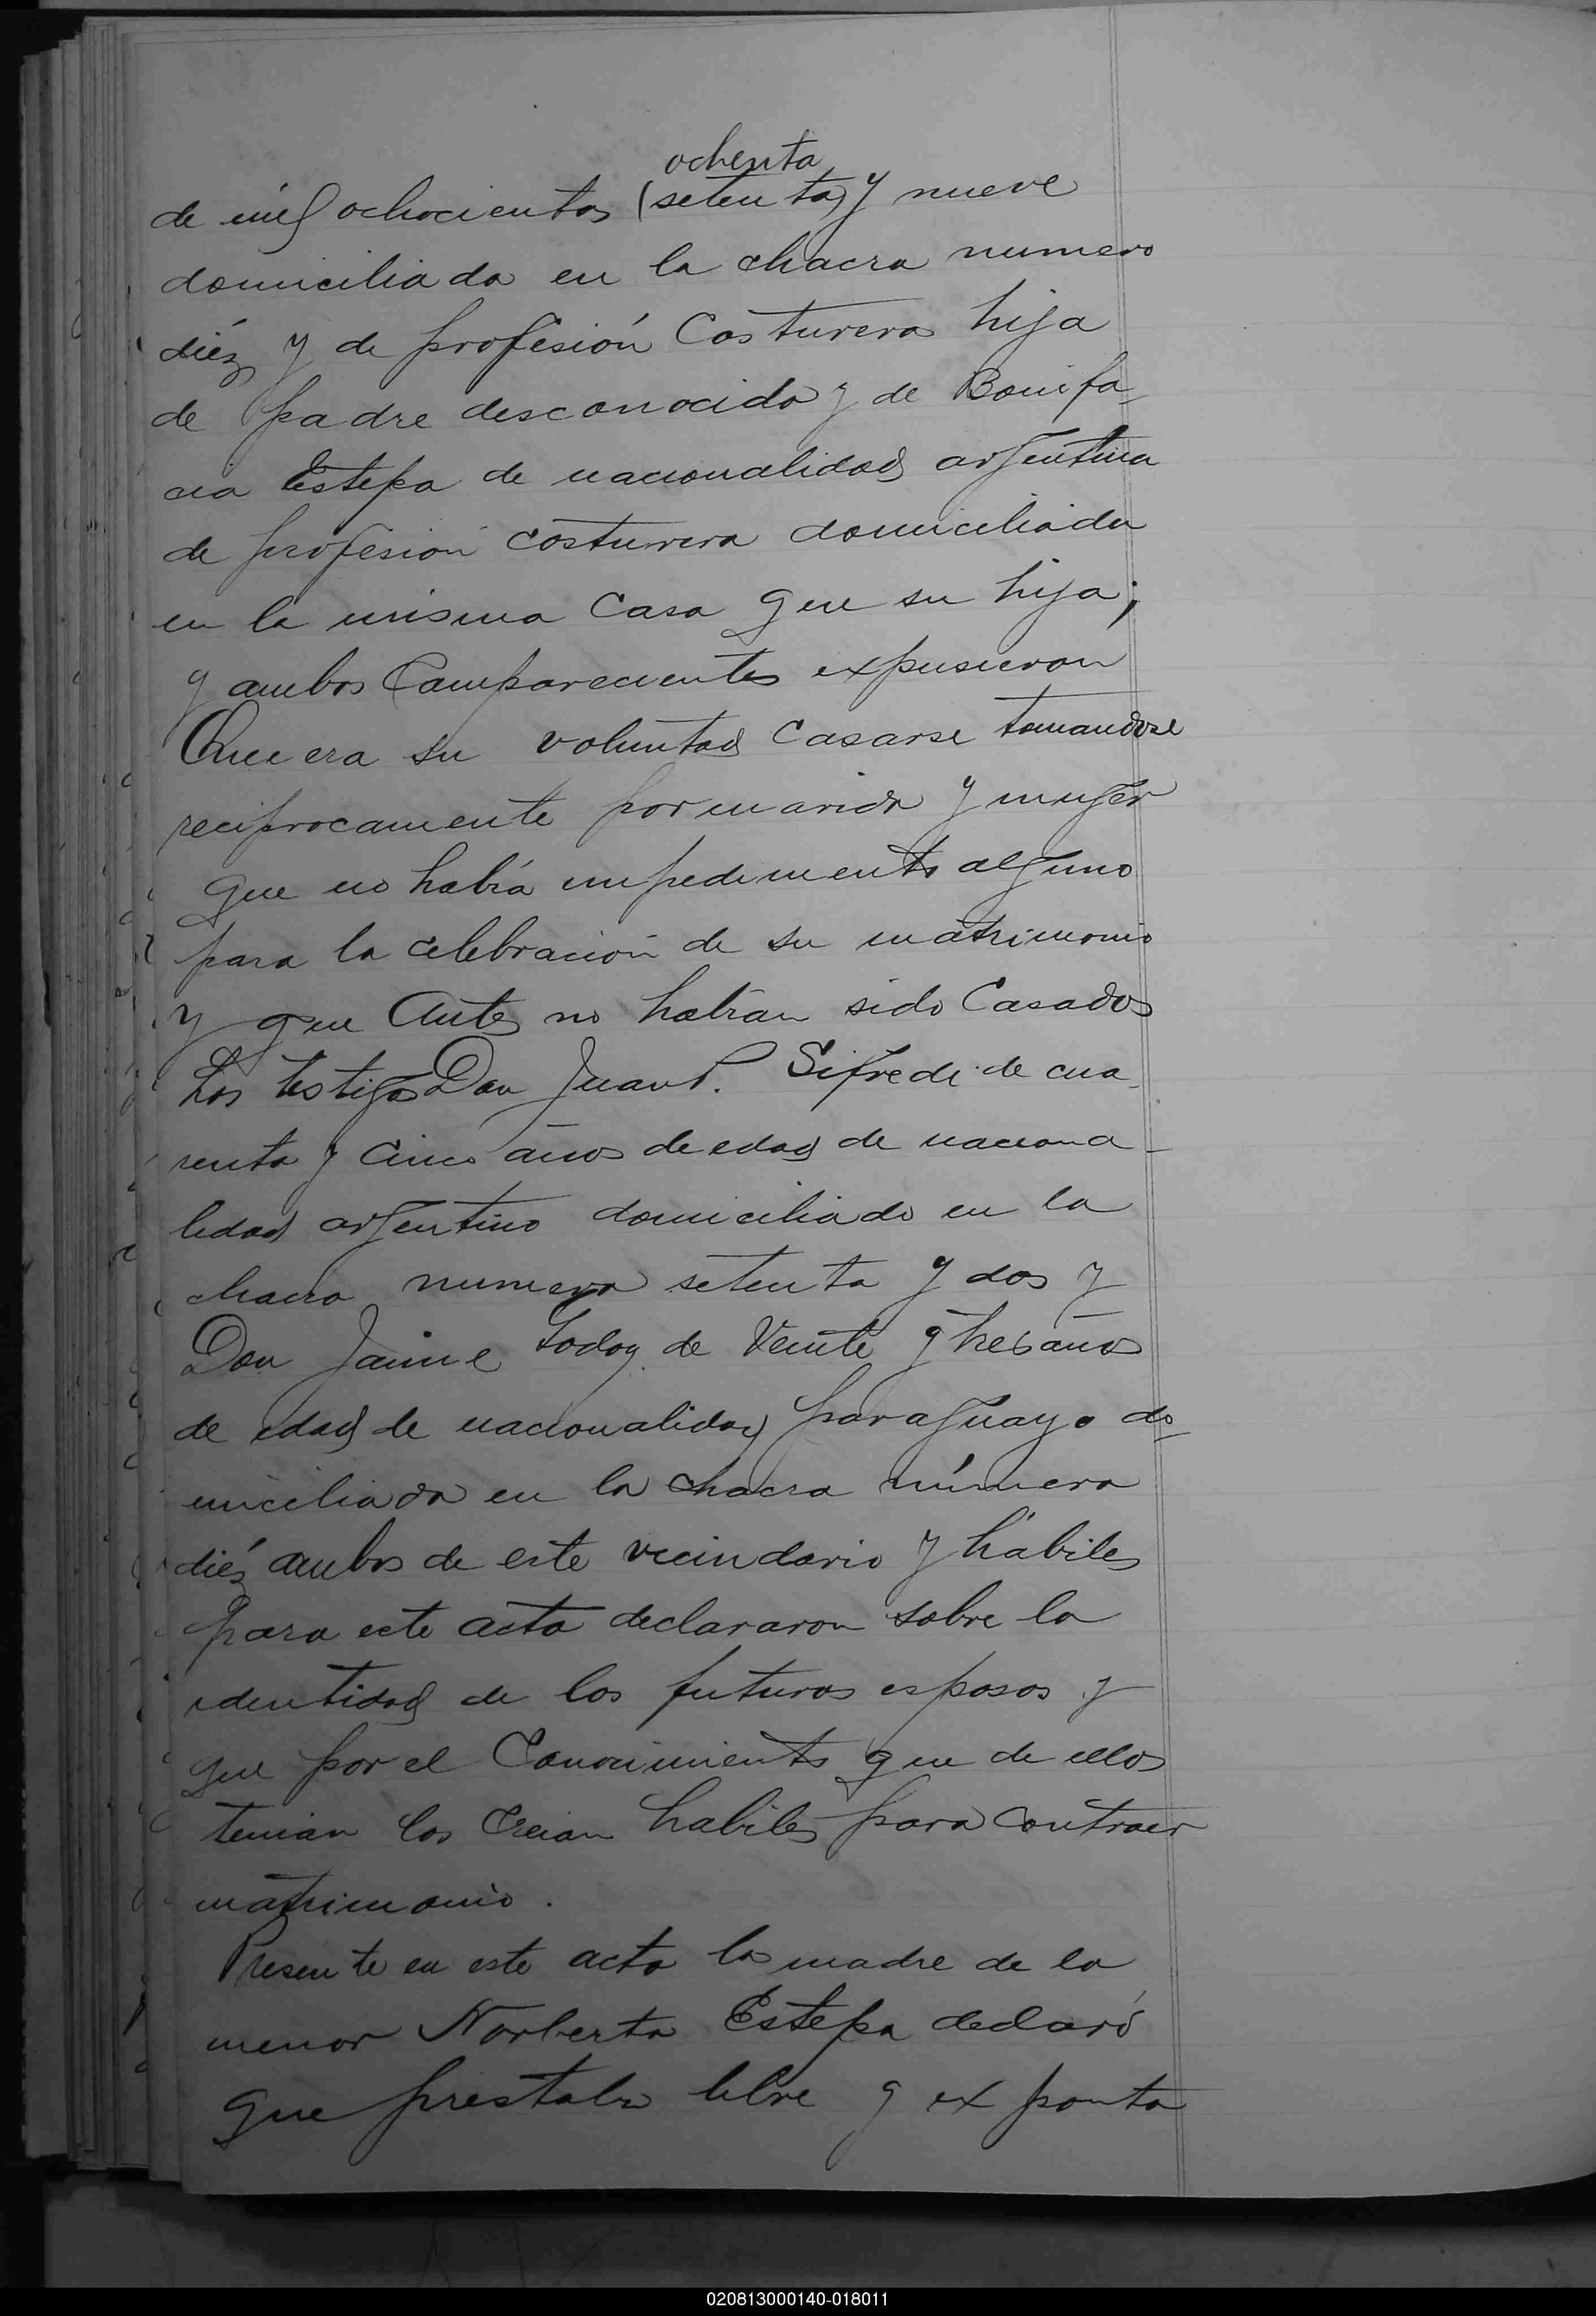 ochenta
de mil ochocientos (setenta) y nueve
domiciliada en la chacra numero
diéz y de profesión Costurera hija
de padre desconocido y de Bonifa-
cia Estepa de nacionalidad argentina
de profesion costurera domiciliada
en la misma Casa que su hija;
y ambos Comparecientes expusieron
Que era su voluntad Casarse tomandose
reciprocamente por marido y mujer
que no había impedimento alguno
para la celebración de su matrimonio
y que Antes no habian sido Casados
Los testigos Don Juan P. Sifredi de cua-
renta y cinco años de edad de naciona-
lidad argentino domiciliado en la
chacra numero setenta y dos y
Don Jaime Godoy de Veinte y tres años
de edad de nacionalidad paraguayo do-
miciliado en la chacra número
diéz ambos de este vecindario y hábiles
para este acto declararon sobre la
identidad de los futuros esposos y
que por el Conocimiento que de ellos
tenian los Creian habiles para contraer
matrimonio.
Presente en este acto la madre de la
menor Norberta Estepa declaró
que prestaba libre y exponta
020813000140-018011